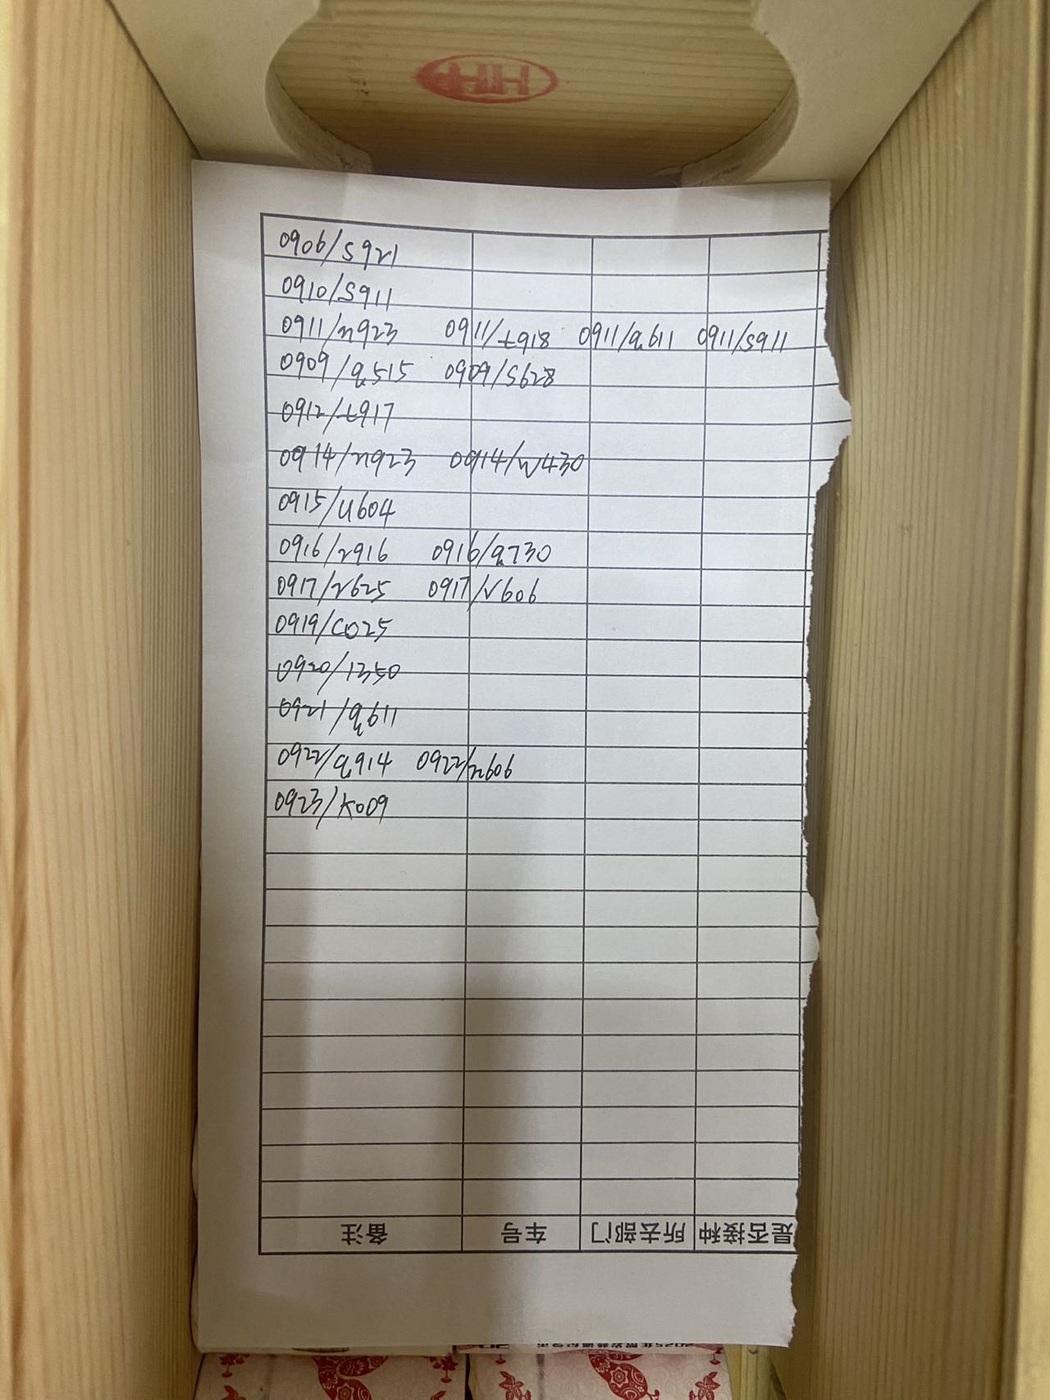 0906/S921
0910/S911
0911/n923 0911/t918 0911/q611 0911/S911
0909/q515 0909/S628
0912/t917
0914/n923 0914/W430
0915/U604
0916/r916 0916/q730
0917/r625 0917/V606
0919/C025
0920/1350
0921/q611
0922/q914 0922/n606
0923/K009
备注 车号 所去部门 是否接种